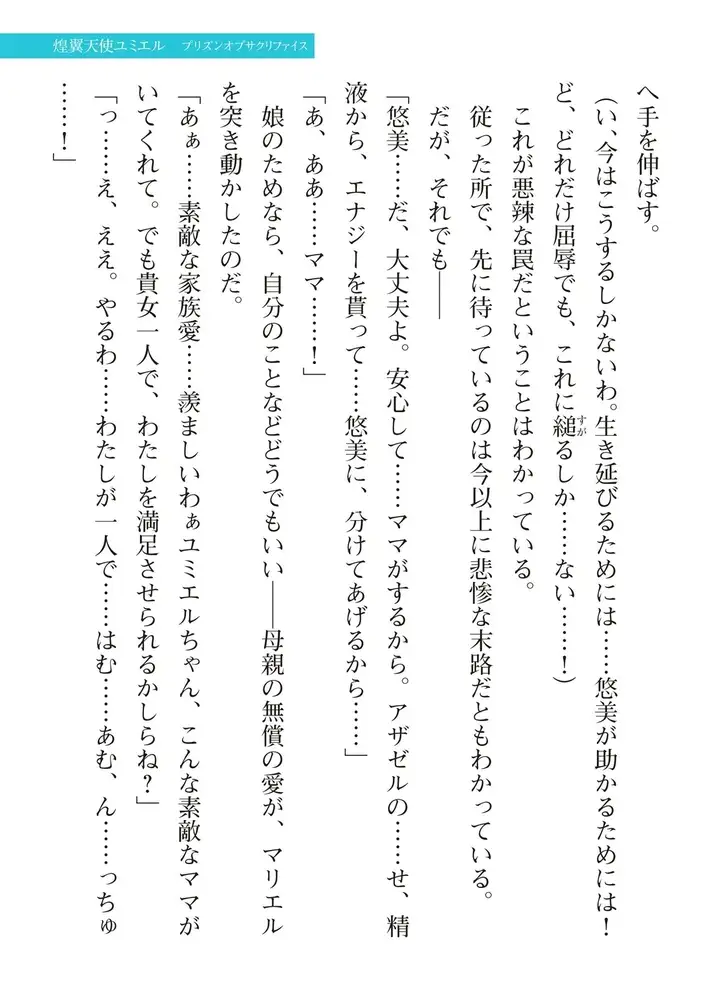 煌翼天使ユミエル　プリズンオブサクリファイス
へ手を伸ばす。
（い、今はこうするしかないわ。生き延びるためには……悠美が助かるためには！
ど、どれだけ屈辱でも、これに縋るしか……ない……！）
すが
これが悪辣な罠だということはわかっている。
従った所で、先に待っているのは今以上に悲惨な末路だともわかっている。
だが、それでも――
「悠美……だ、大丈夫よ。安心して……ママがするから。アザゼルの……せ、精
液から、エナジーを貰って……悠美に、分けてあげるから……」
「あ、ああ……ママ……！」
娘のためなら、自分のことなどどうでもいい――母親の無償の愛が、マリエル
を突き動かしたのだ。
「あぁ……素敵な家族愛……羨ましいわぁユミエルちゃん、こんな素敵なママが
いてくれて。でも貴女一人で、わたしを満足させられるかしらね？」
「っ……え、ええ。やるわ……わたしが一人で……はむ……あむ、ん……っちゅ
……！」